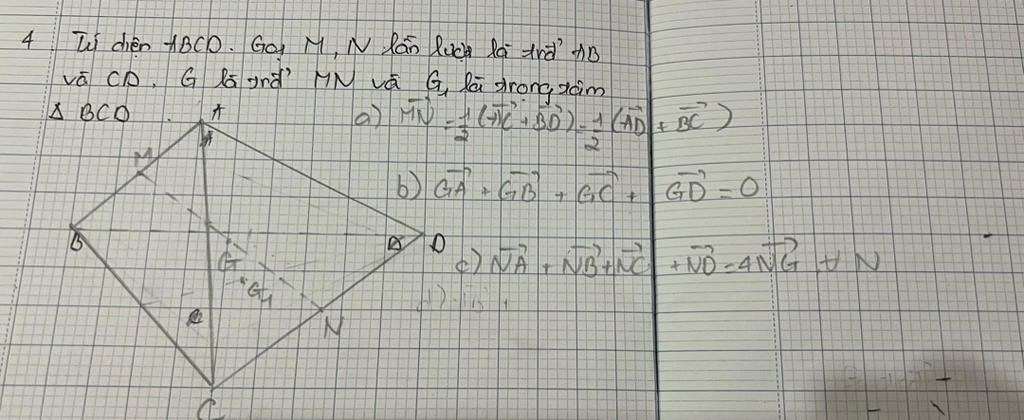 4 Tứ diện ABCD. Gọi M, N lần lượt là trđ' AB
và CD. G là trđ' MN và G₁ là trọng tâm
Δ BCD
a) MN = 1/2 (AC + BD) = 1/2 (AD + BC)
b) GA + GB + GC + GD = 0
c) NA + NB + NC + ND = 4NG ∀ N
d)
A
M
B
D
G
G₁
N
C